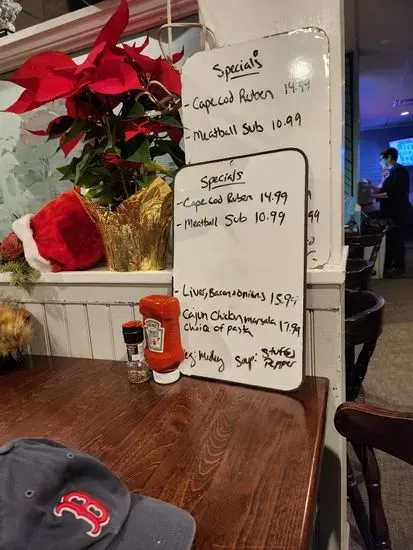 Specials
- Cape Cod Ruben 14.99
- Meatball Sub 10.99
Specials
- Cape Cod Ruben 14.99
- Meatball Sub 10.99
- Liver, Bacon + Onions 15.99
- Cajun Chicken marsala 17.99
choice of pasta
Veg: Medley Soup: Stuffed
Pepper
HEINZ
B